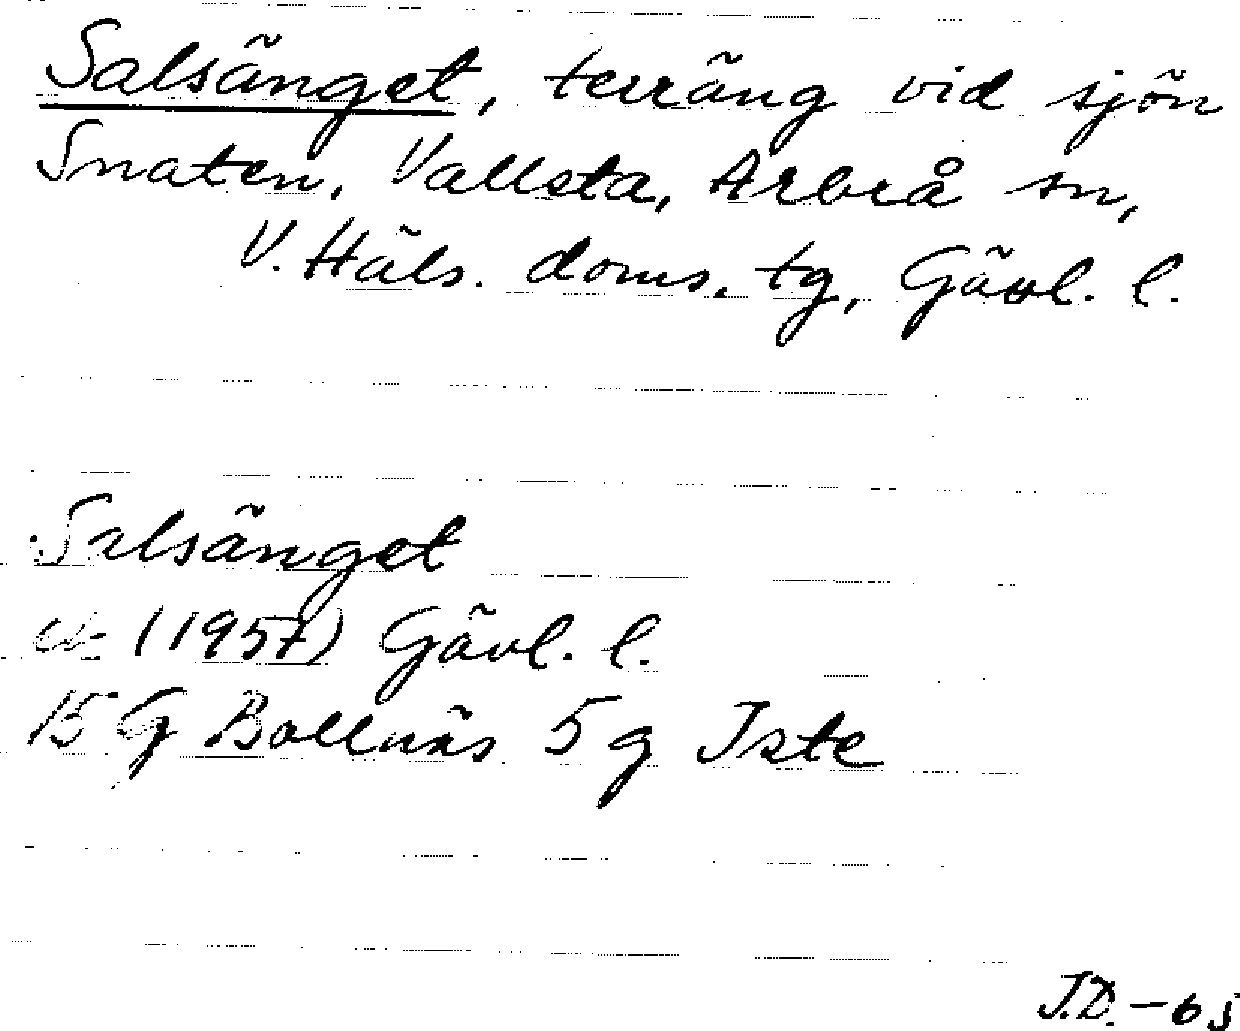 Salsänget, terräng vid sjön
Snaten, Vallsta, Arbrå sn,
V. Häls. doms. tg, Gävl. l.
Salsänget
ek (1957) Gävl. l.
15 G Bollnäs 5 g Iste
J.D. -65